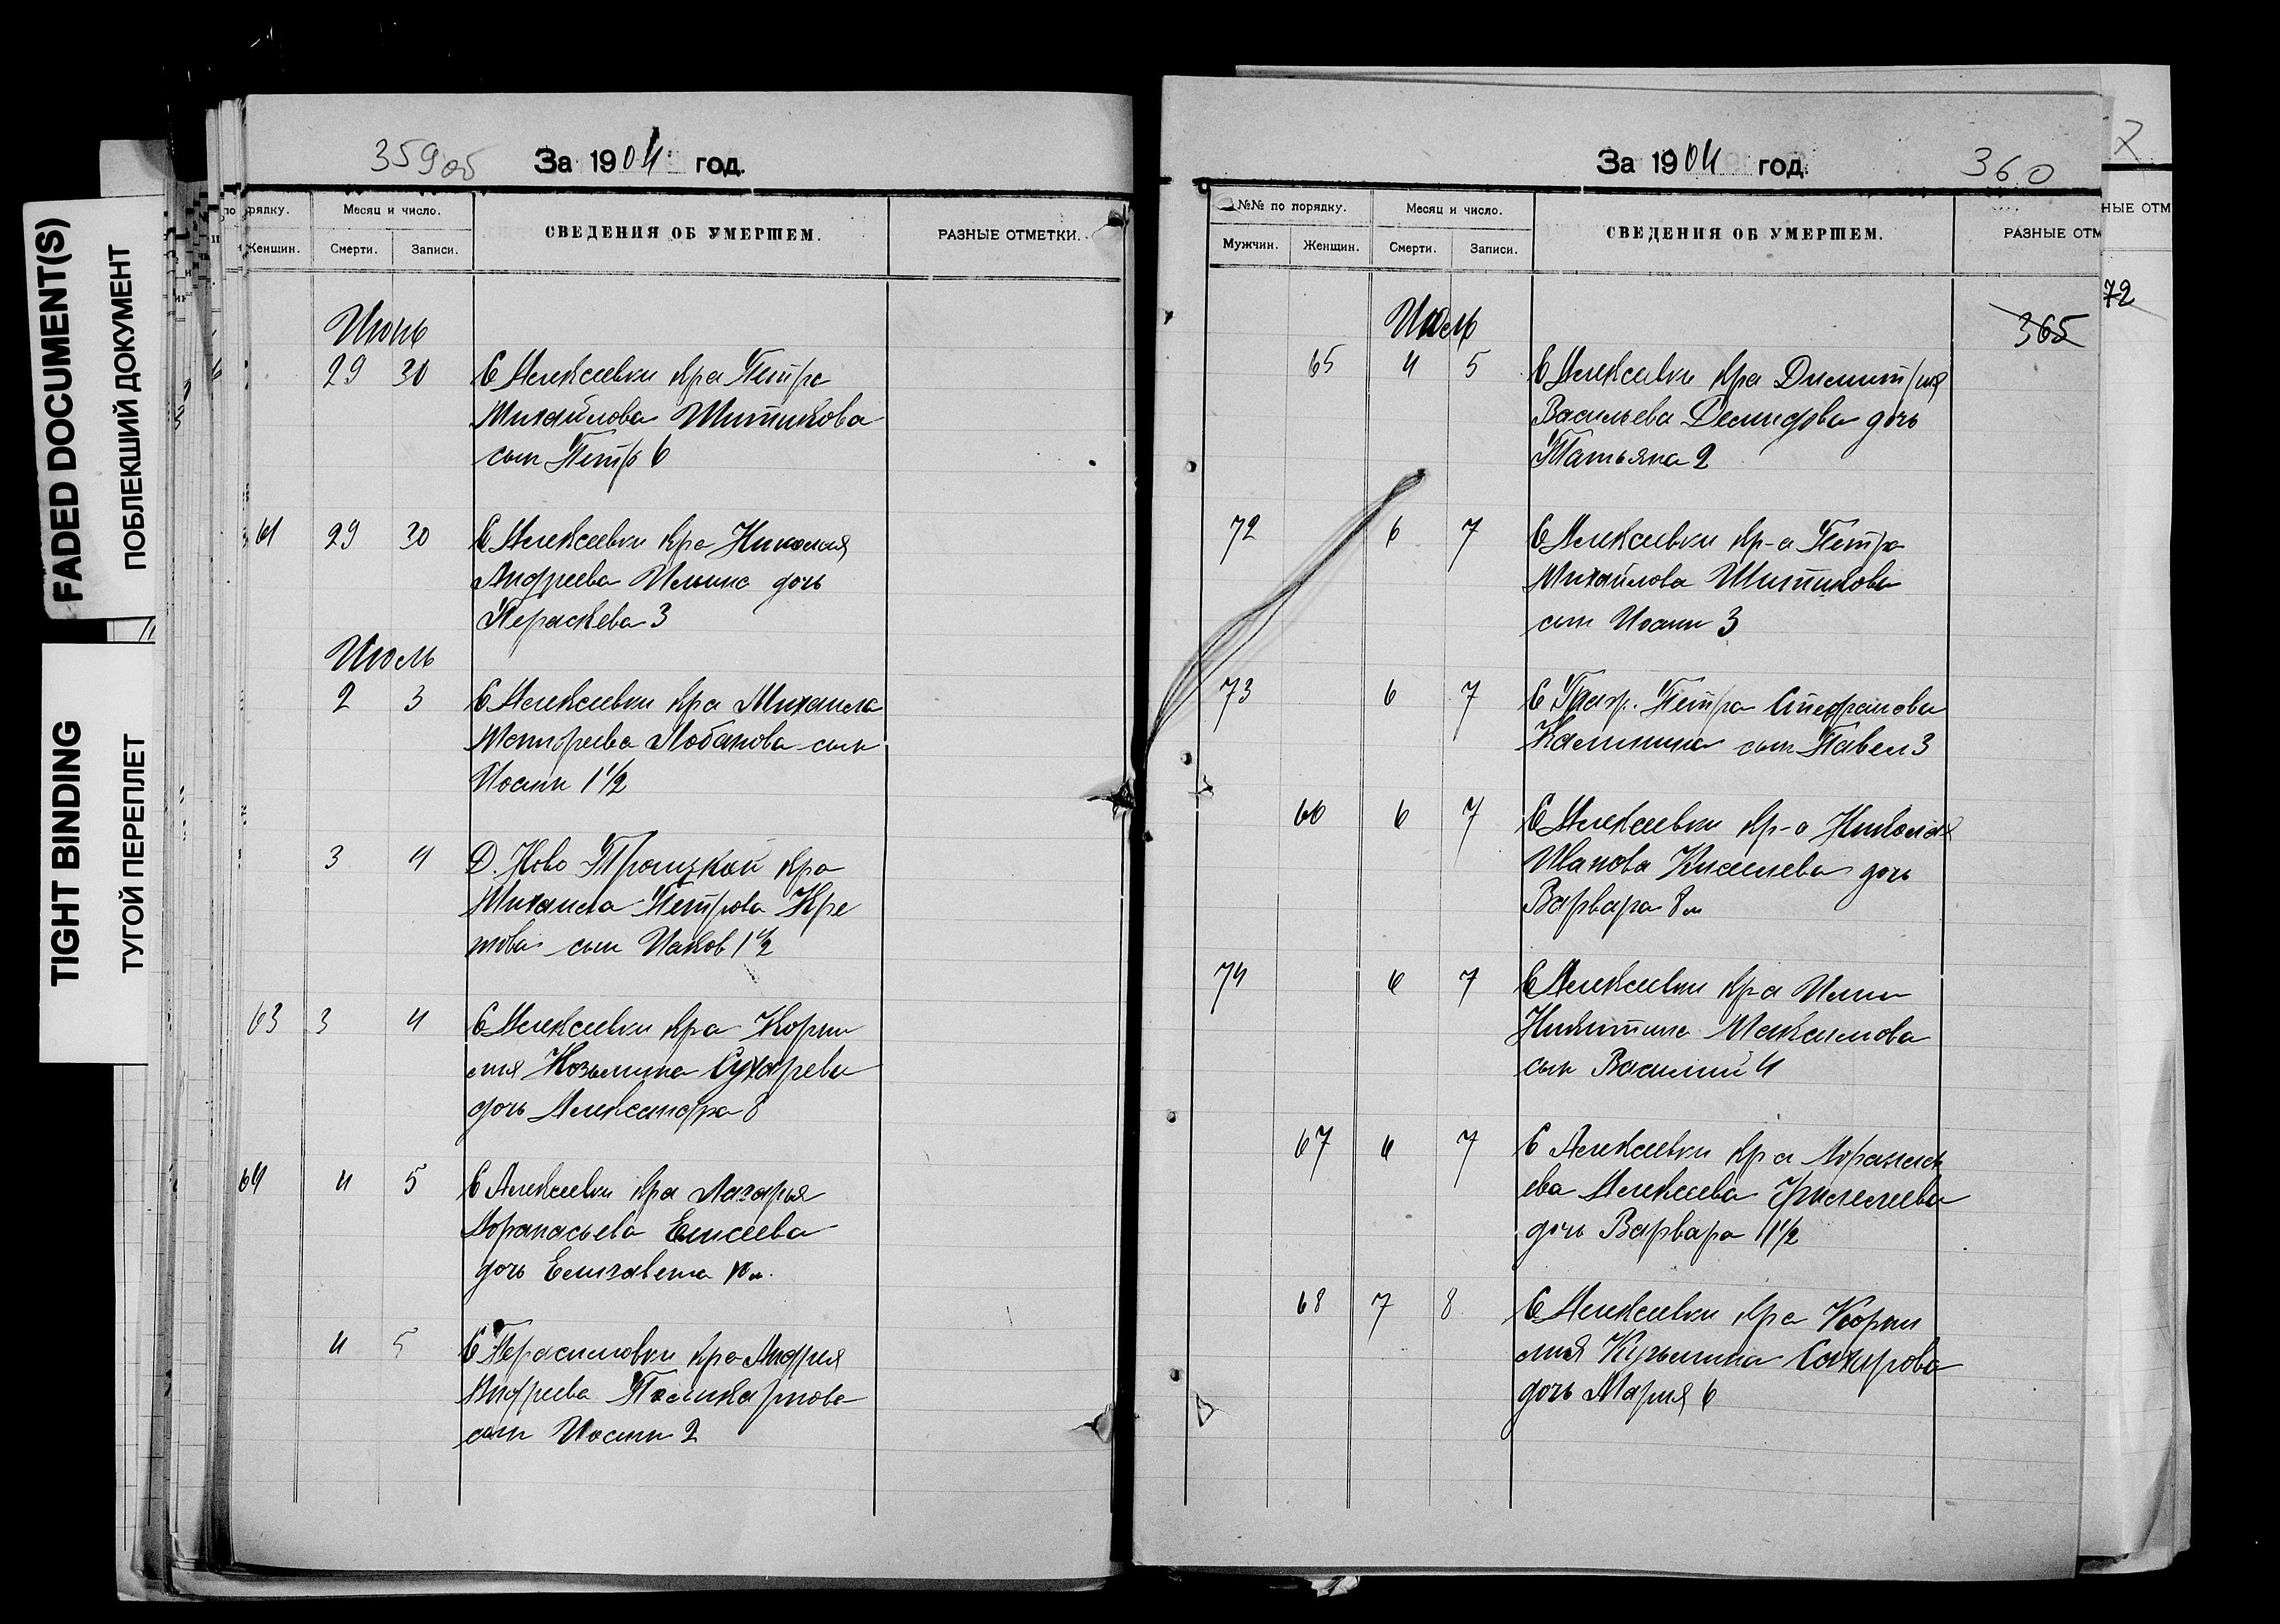 FADED DOCUMENT(S)
ПОБЛЕКШИЙ ДОКУМЕНТ
TIGHT BINDING
ТУГОЙ ПЕРЕПЛЕТ
359об За 1904 год.
рядку. Месяц и число. СВЕДЕНИЯ ОБ УМЕРШЕМ. РАЗНЫЕ ОТМЕТКИ.
Женщин. Смерти. Записи.
Июнь
29 30 С Алексеевки кр-а Петра
Михайлова Шитикова
сын Петр 6
61 29 30 С Алексеевки кр-а Николая
Андреева Ильина дочь
Параскева 3
Июль
2 3 С Алексеевки кр-а Михаила
Дмитриева Лобанова сын
Иоанн 1 1/2
3 4 Д. Ново Троицкой кр-а
Михаила Петрова Кре
това сын Иаков 1 1/2
63 3 4 С Алексеевки кр-а Корни
лия Козьмина Сухарева
дочь Александра 8
64 4 5 С Алексеевки кр-а Лазаря
Афанасьева Елисеева
дочь Елизавета 10 м.
4 5 С Герасимовки кр-а Андрея
Андреева Поликарпова
сын Иоанн 2
За 1904 год. 360
№№ по порядку. Месяц и число. СВЕДЕНИЯ ОБ УМЕРШЕМ. РАЗНЫЕ ОТМ
Мужчин. Женщин. Смерти. Записи.
Июль
365
65 4 5 С Алексеевки кр-а Димитрия
Васильева Демидова дочь
Татьяна 2
72 6 7 С Алексеевки кр-а Петра
Михайлова Шитикова
сын Иоанн 3
73 6 7 Петра Стефанова
Калинина сын Павел 3
66 6 7 С Алексеевки кр-а Николая
Иванова Киселева дочь
Варвара 8 м
74 6 7 С Алексеевки кр-а Ильи
Никитина Максимова
сын Василий 4
67 6 7 С Алексеевки кр-а Афанась
ева Алексеева
дочь Варвара 1 1/2
68 7 8 С Алексеевки кр-а Корни
лия Кузьмина Сахарова
дочь Мария 6
НЫЕ ОТМ
72